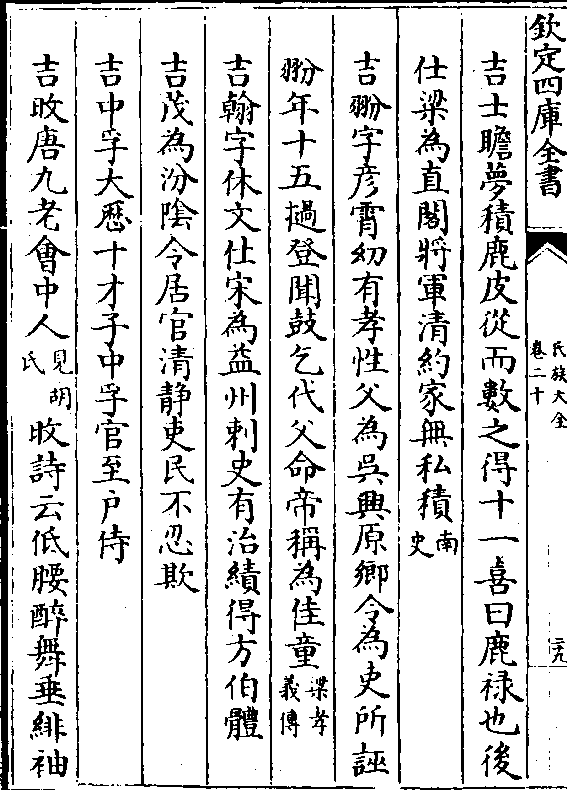 欽定四庫全書
氏族大全
卷二十
二九
吉士瞻夢積鹿皮從而數之得十一喜曰鹿祿也後
仕梁為直閣將軍清約家無私積南史
吉翂字彦霄幼有孝性父為吳興原鄉令為吏所誣
翂年十五撾登聞鼓乞代父命帝稱為佳童梁孝義傳
吉翰字休文仕宋為益州刺史有治績得方伯體
吉茂為汾陰令居官清静吏民不忍欺
吉中孚大厯十才子中孚官至户侍
吉旼唐九老會中人見胡氏旼詩云低腰醉舞垂緋袖